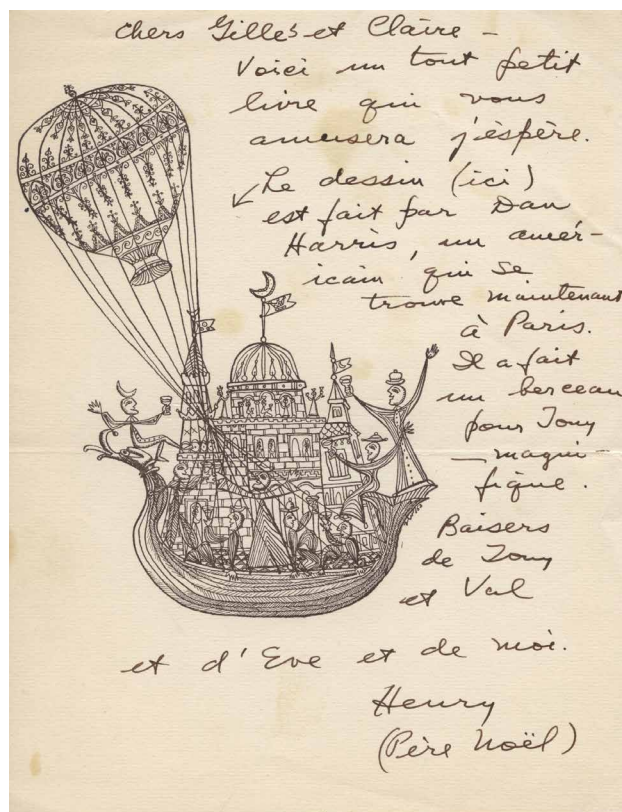 chers Gilles et Claire –
Voici un tout petit
livre qui vous
amusera j'éspère.
Le dessin (ici)
est fait par Dan
Harris, un amér-
icain qui se
trouve maintenant
à Paris.
Il a fait
un berceau
pour Tony
— magni-
fique.
Baisers
de Tony
et Val
et d'Eve et de moi.
Henry
(Père Noël)